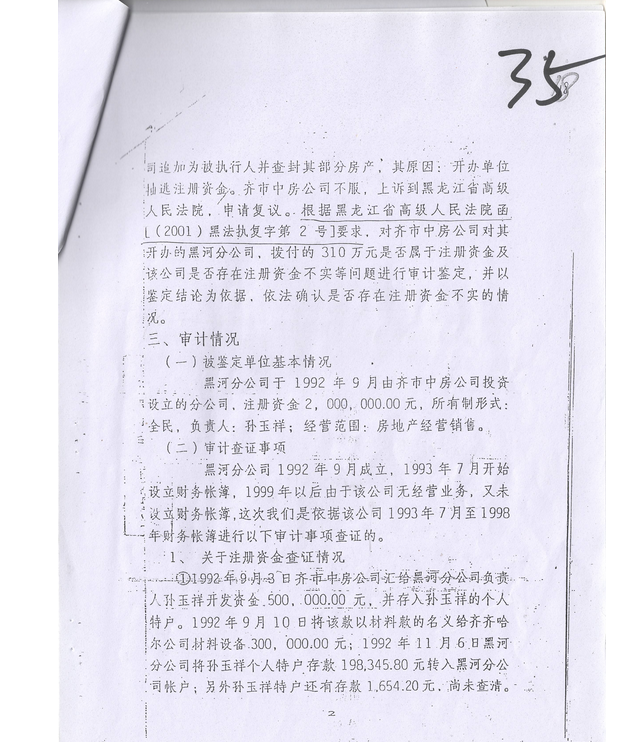 35
司追加为被执行人并查封其部分房产，其原因：开办单位
抽逃注册资金。齐市中房公司不服，上诉到黑龙江省高级
人民法院，申请复议。根据黑龙江省高级人民法院函
[(2001)黑法执复字第2号]要求，对齐市中房公司对其
开办的黑河分公司，拨付的310万元是否属于注册资金及
该公司是否存在注册资金不实等问题进行审计鉴定，并以
鉴定结论为依据，依法确认是否存在注册资金不实的情
况。
三、审计情况
（一）被鉴定单位基本情况
黑河分公司于1992年9月由齐市中房公司投资
设立的分公司，注册资金2，000，000.00元，所有制形式：
全民，负责人：孙玉祥；经营范围：房地产经营销售。
（二）审计查证事项
黑河分公司1992年9月成立，1993年7月开始
设立财务帐薄，1999年以后由于该公司无经营业务，又未
设立财务帐薄，这次我们是依据该公司1993年7月至1998
年财务帐薄进行以下审计事项查证的。
1、关于注册资金查证情况
①1992年9月3日齐市中房公司汇给黑河分公司负责
人孙玉祥开发资金500，000.00元，并存入孙玉祥的个人
特户。1992年9月10日将该款以材料款的名义给齐齐哈
尔公司材料设备300，000.00元；1992年11月6日黑河
分公司将孙玉祥个人特户存款198,345.80元转入黑河分公
司帐户；另外孙玉祥特户还有存款1,654.20元，尚未查清。
2